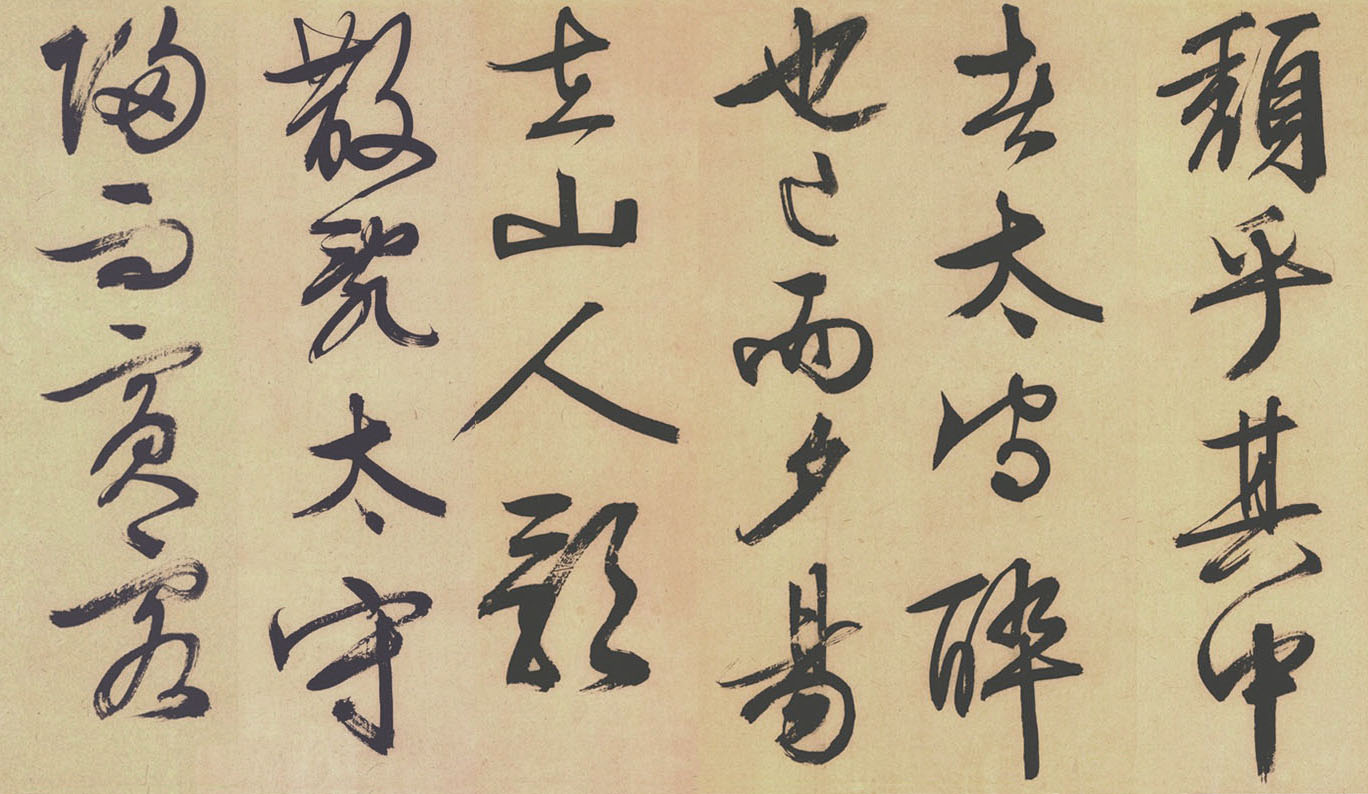 頽乎其中
者太守醉
也已而夕昜
在山人影
散亂太守
歸而賓客